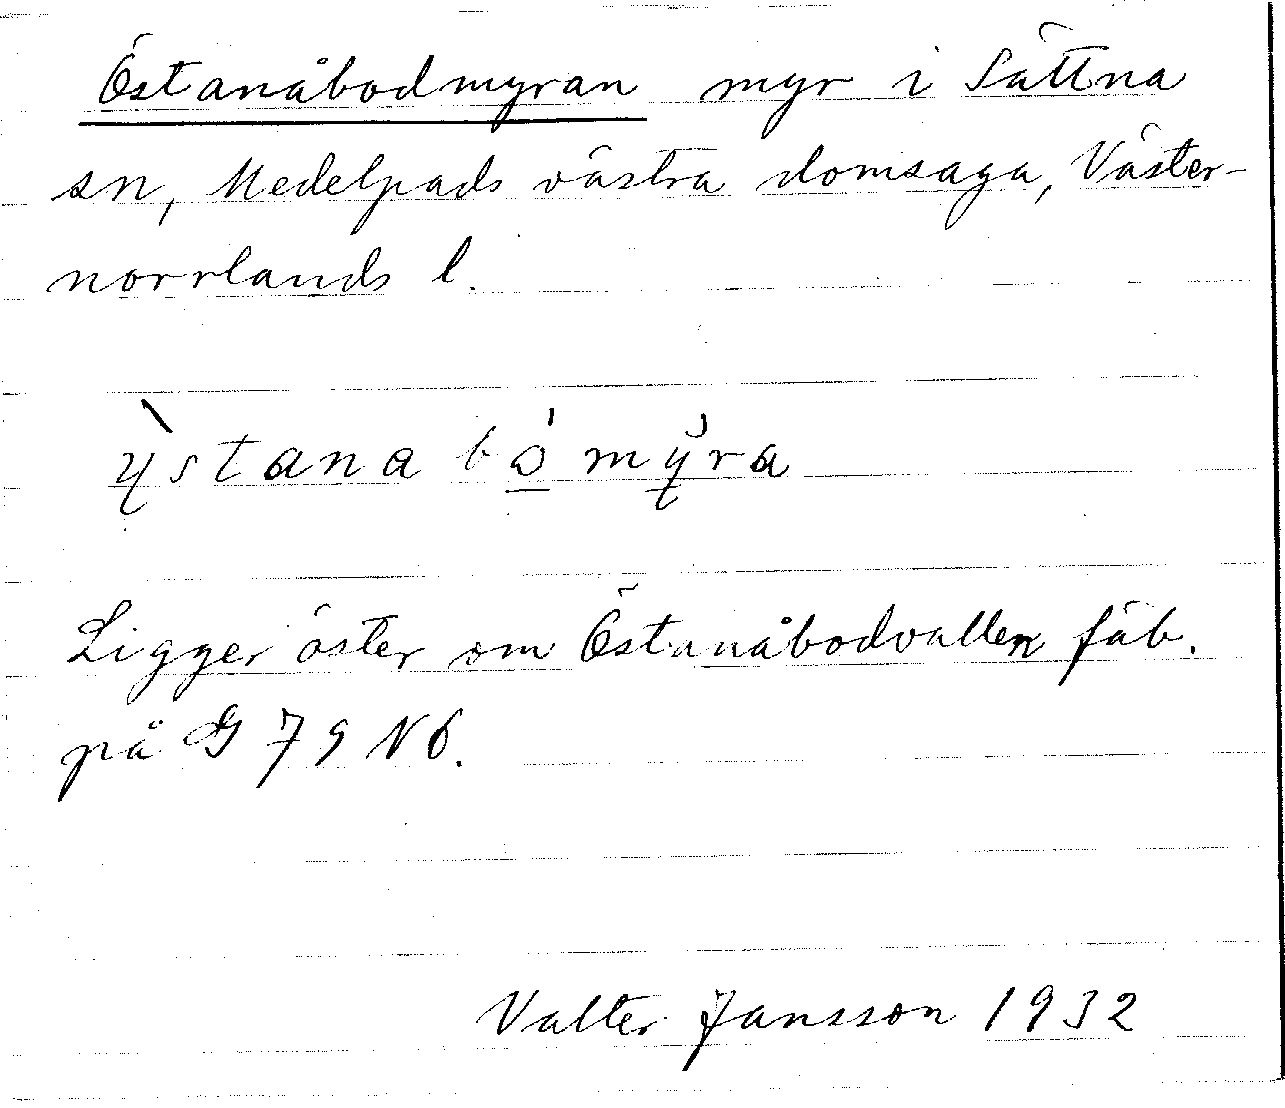 Östanåbodmyran myr i Sättna
sn, Medelpads västra domsaga, Väster-
norrlands l.
ỳstana bo̲̍ my̲̆ra
Ligger öster om Östanåbodvallen fäb.
på G 79 N6.
Valter Jansson 1932